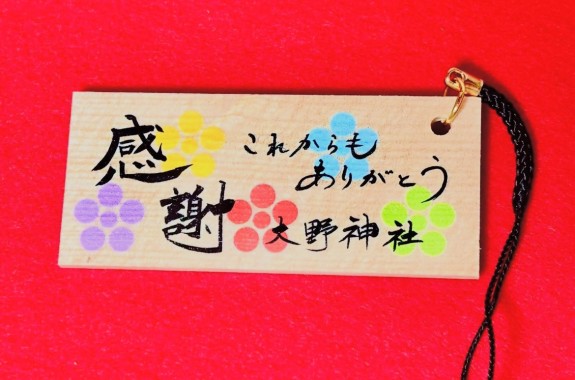 感謝
これからも
ありがとう
大野神社